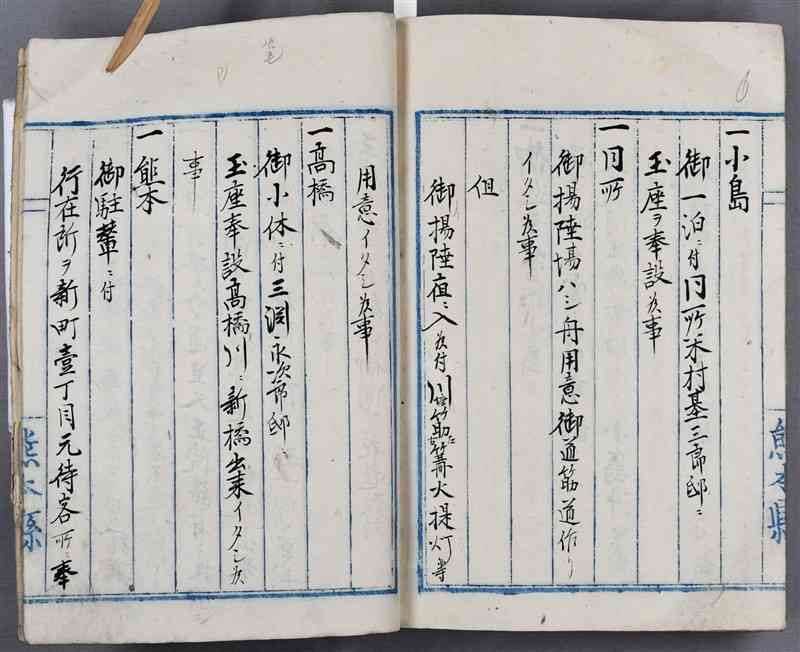 一小島
御一泊ニ付同所米村基三郎邸ニ
玉座ヲ奉設候事
一同所
御揚陸場ハシ舟用意御道筋道作リ
イタシ候事
但
御揚陸夜ニ入候付川筋篝火提灯等
用意イタシ候事
一高橋
御小休ニ付三渕永次郎邸ニ
玉座奉設高橋川ニ新橋出来イタシ候
事
一熊本
御駐輦ニ付
行在所ヲ新町壹丁目元待客所ニ奉
熊本縣
熊本縣